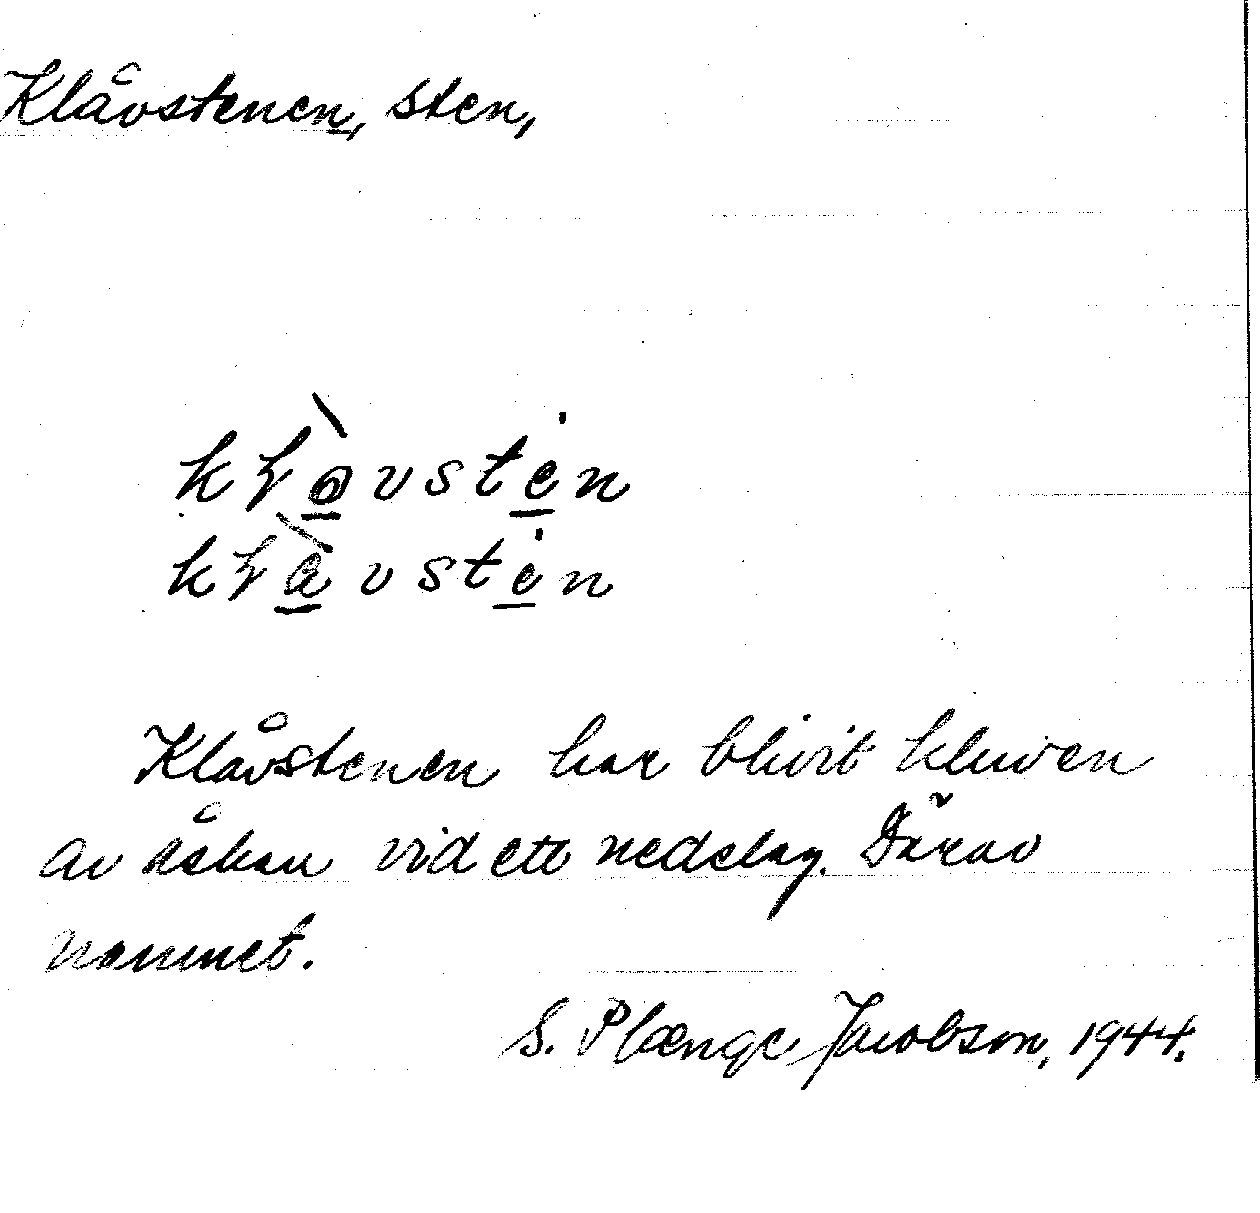 Klåvstenen, sten,
Klåvstenen har blivit kluven
av åskan vid ett nedslag. Därav
namnet.
S. Plænge Jacobson, 1944.